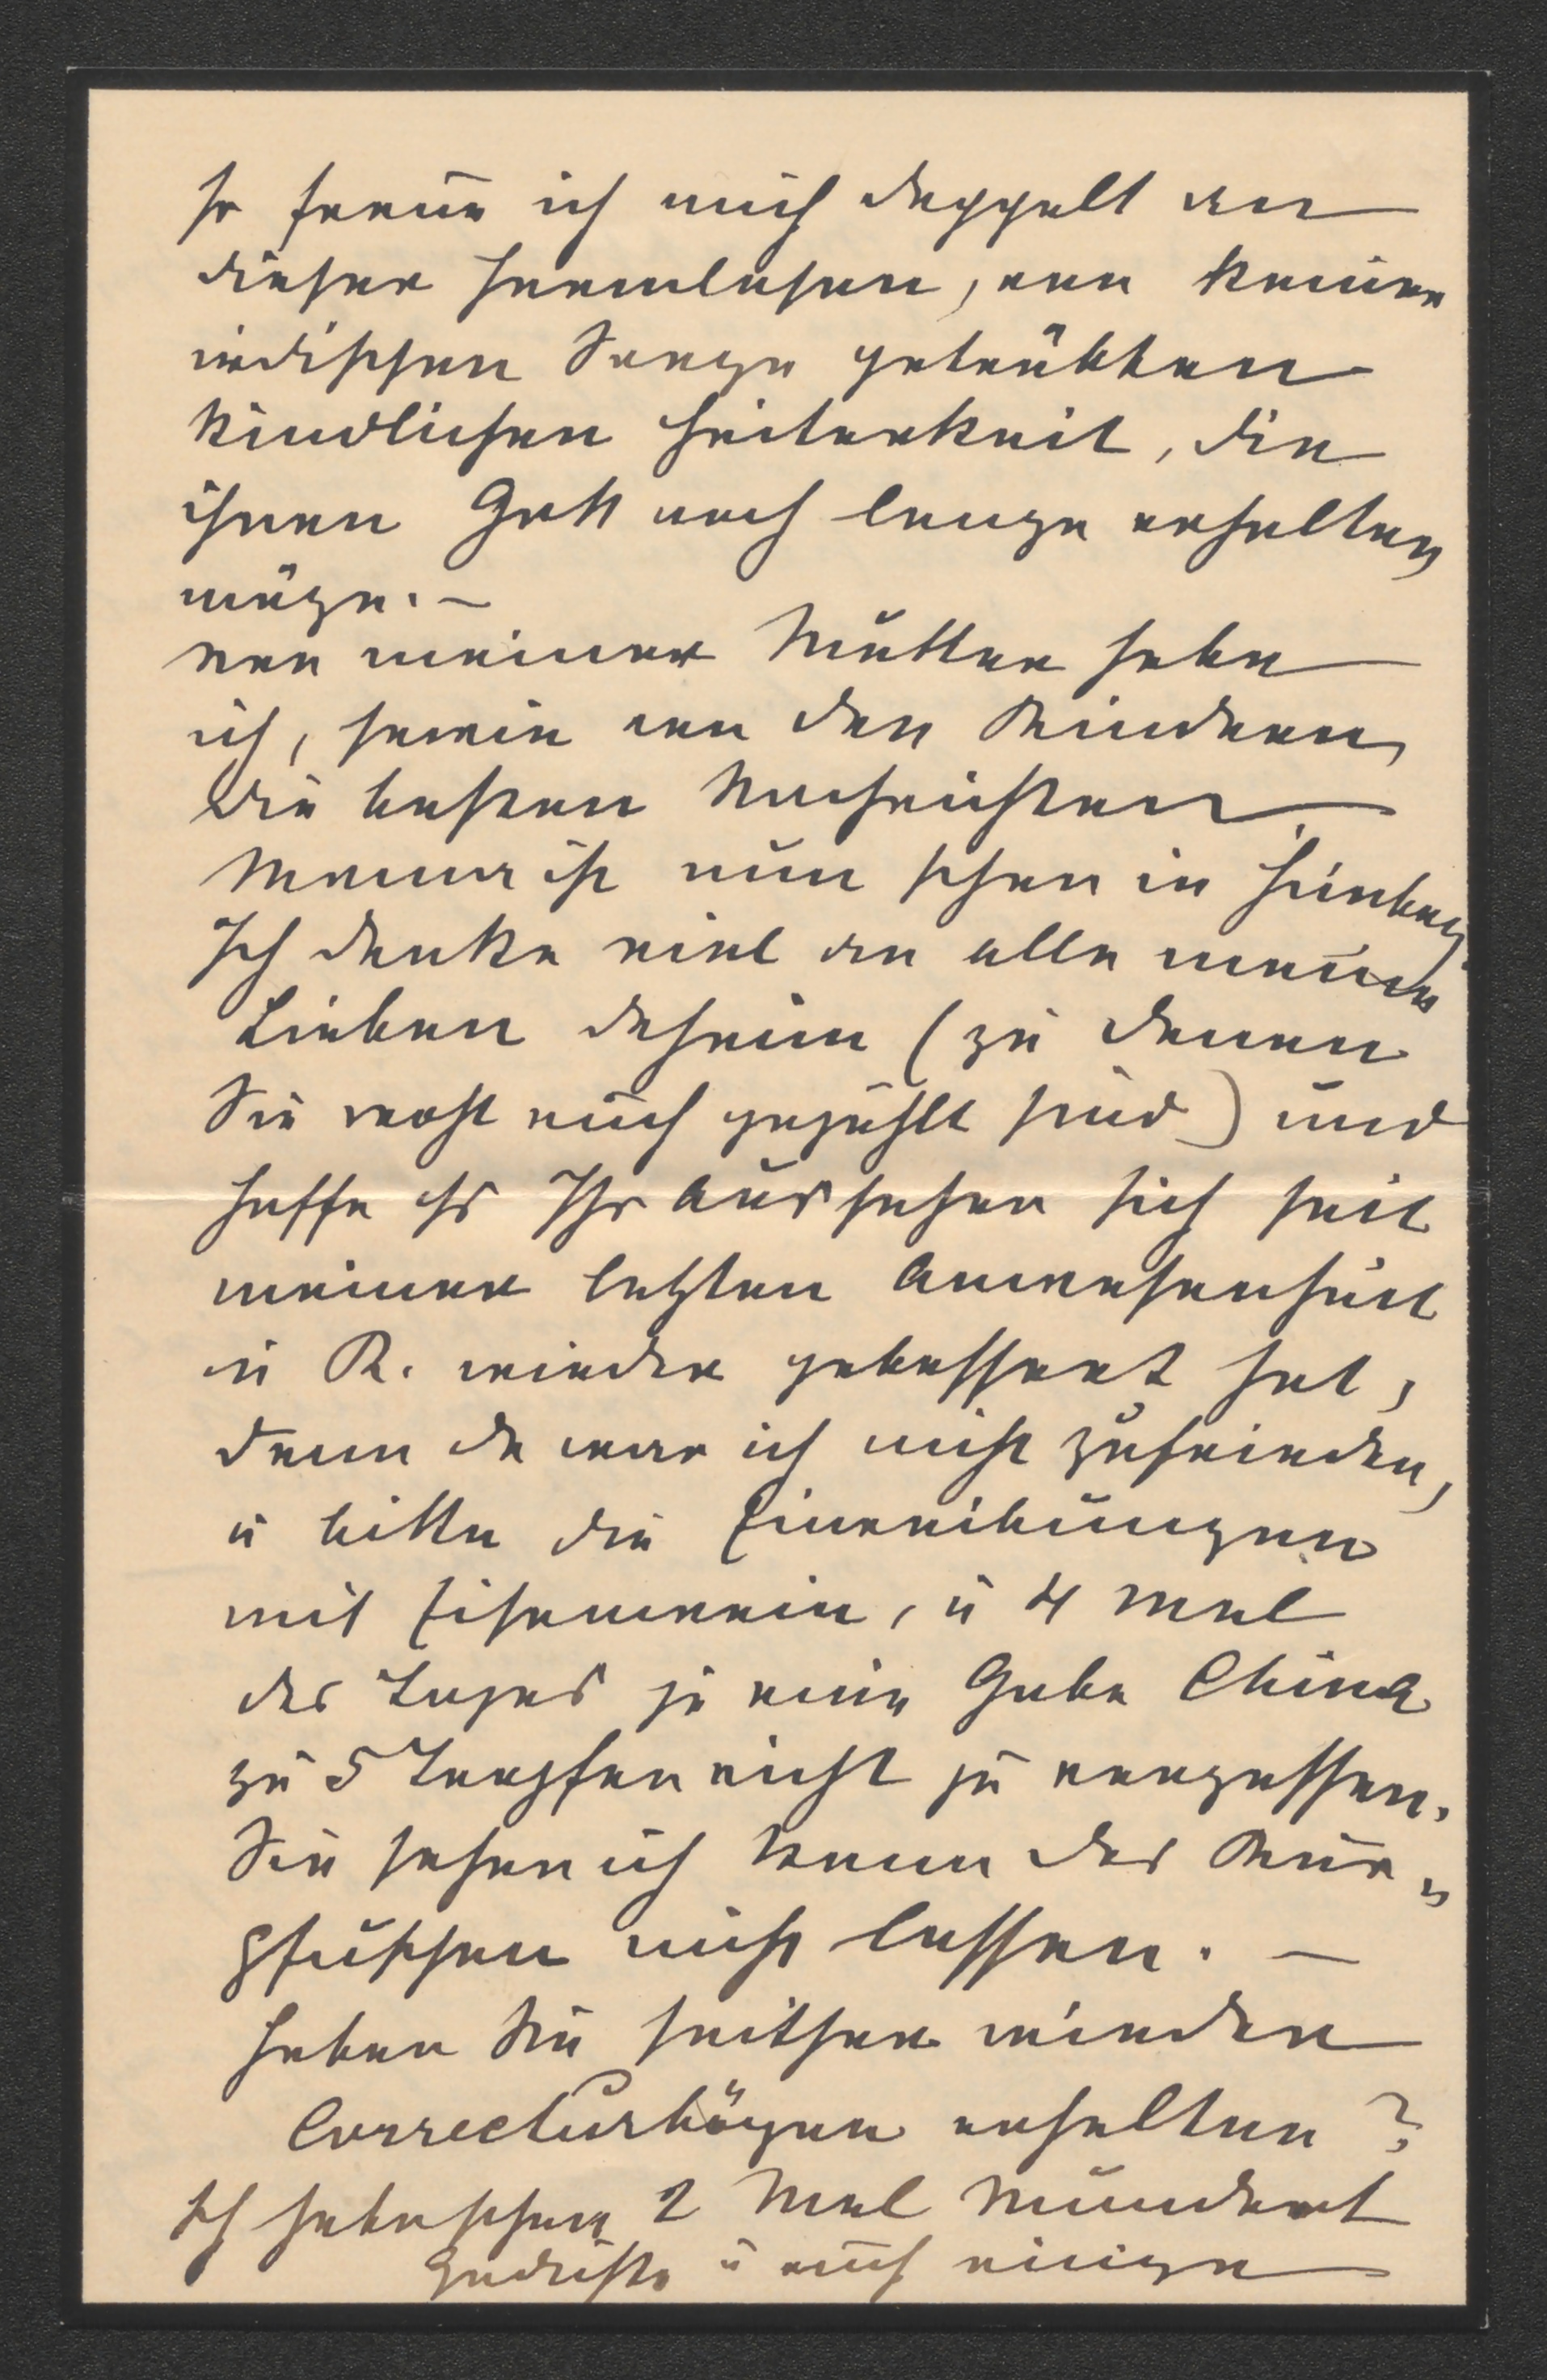 so freue ich mich doppelt an
dieser harmlosen, von keiner
irdischen Sorge getrübten
kindlichen Heiterkeit, die
ihnen Gott noch lange erhalten
möge. –
Von meiner Mutter habe
ich, sowie von den Kindern,
die besten Nachrichten
Mama ist nun schon in
Ich denke viel an alle meine
Lieben daheim (zu denen
Sie wohl auch gezählt sind) und
hoffe es Ihr Aussehen sich seit
meiner letzten Anwesenheit
in R. wieder gebessert hat,
denn da war ich nicht zufrieden,
u bitte die Einreibungen
mit Eisenwein, u 4 mal
des Tages je eine Gabe China
zu 5 Tropfen nicht zu vergessen.
Sie sehen ich kann das Kur„
pfuschen nicht lassen. –
Haben Sie seither wieder
Correcturbögen erhalten?
Ich habe schon 2 Mal Mundart
Gedichte u auch einige